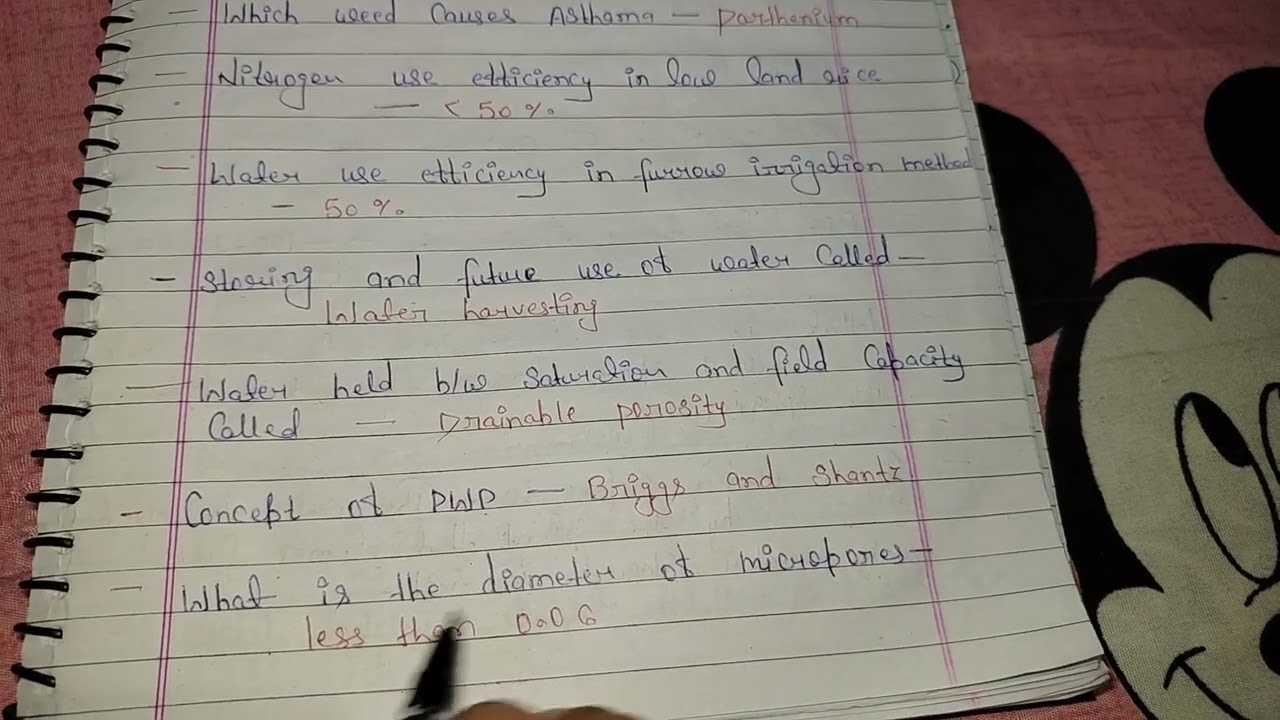 - Which weed Causes Asthama - Parthenium
- Nitrogen use efficiency in low land rice
- < 50 %.
- Water use efficiency in furrow irrigation method
- 50 %.
- Storing and future use of water Called -
Water harvesting
- Water held b/w Saturation and field Capacity
Called - Drainable porosity
- Concept of PWP - Briggs and Shantz
- What is the diameter of micropores -
less than 0.06